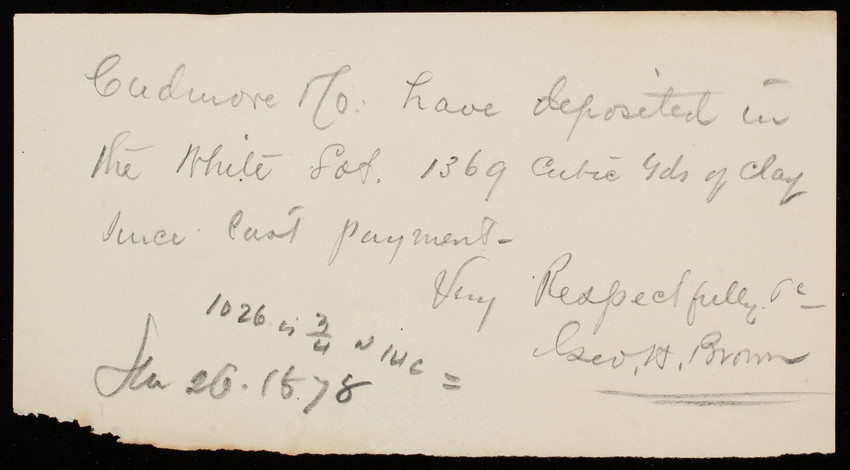 Cudmore &Co. have deposited in
the White Lot. 1369 Cubic Yds of Clay
since last payment -
Very Respectfully. &c
Geo. H. Brown
1026 is 3/4 =
Jan 26. 1878